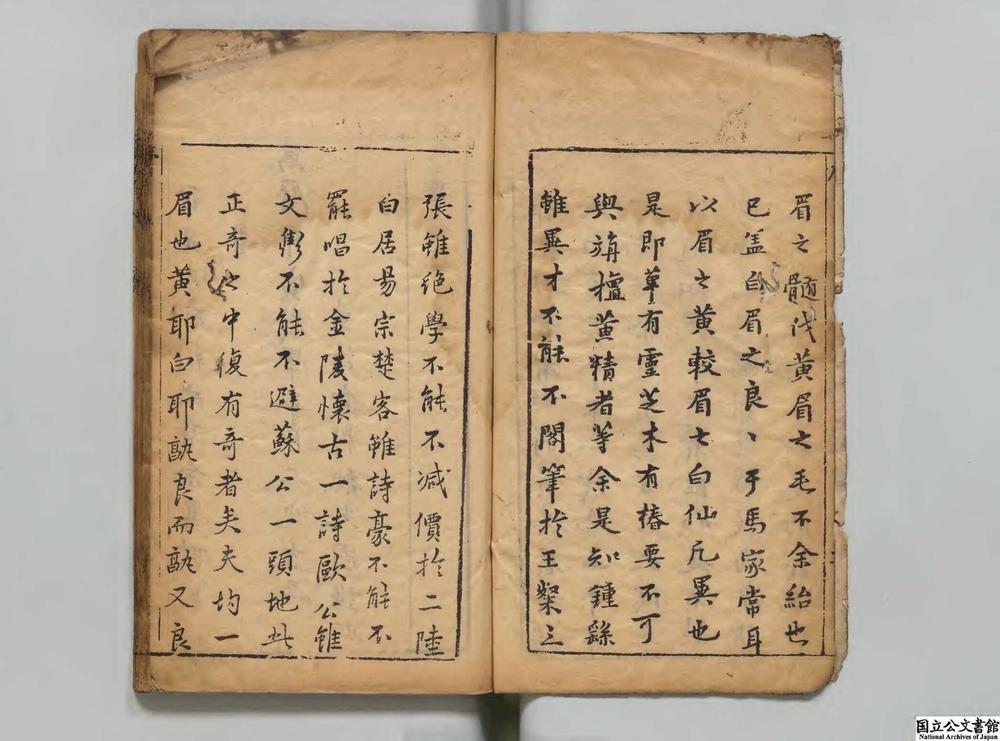 眉之髓伐黃眉之毛不余紿也
已盖白眉之良〻于馬家常耳
以眉之黃較眉之白仙凡異也
是即草有靈芝木有椿要不可
與旃檀黃精者等余是知鍾繇
雖異才不能不閣筆於王粲三
張雖絶學不能不减價於二陸
白居易宗楚客雖詩豪不能不
罷唱於金陵懷古一詩歐公雖
文衡不能不避蘇公一頭地此
正奇之中復有奇者矣夫均一
眉也黃耶白耶孰良而孰又良
国立公文書館
National Archives of Japan